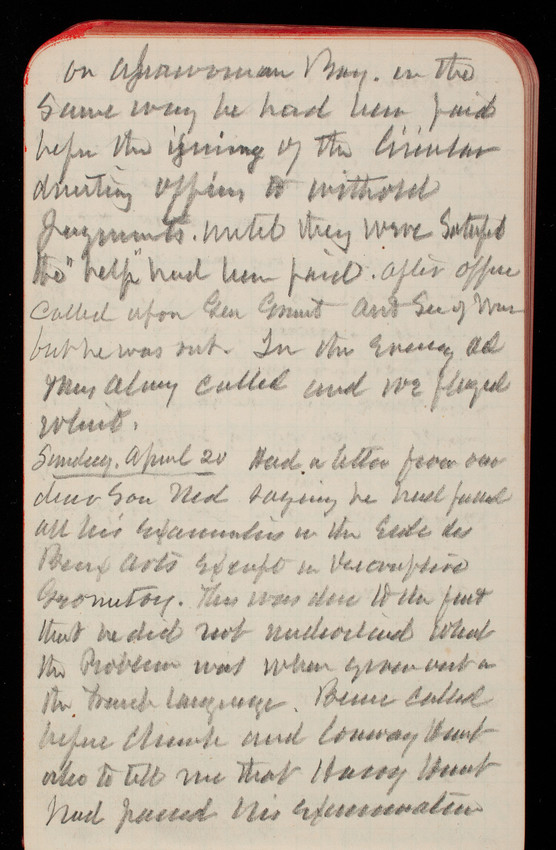 on                    Bay. in the
same way he had been paid
before the issuing of the Circular
directing officers to withold
payments. until they were satisfied
the "help" had been paid. After office
called upon Gen        and Sec of War
but he was out. In the Evening
Mrs Almy called and we played
whist.
Sunday. April 20 Had a letter from our
dear Son Ned saying he had passed
all his examinations in the Ecole des
Beaux Arts Except in Descriptive
Geometry. This was due to the fact
that he did not understand what
the Problem was when given out in
the French language. Berrie called
before Church and Conway Hunt
also to tell me that Harry Hunt
had passed his examination